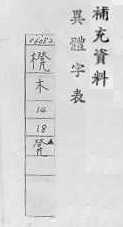 補充資料
異體字表
櫈
木
14
18
凳▲